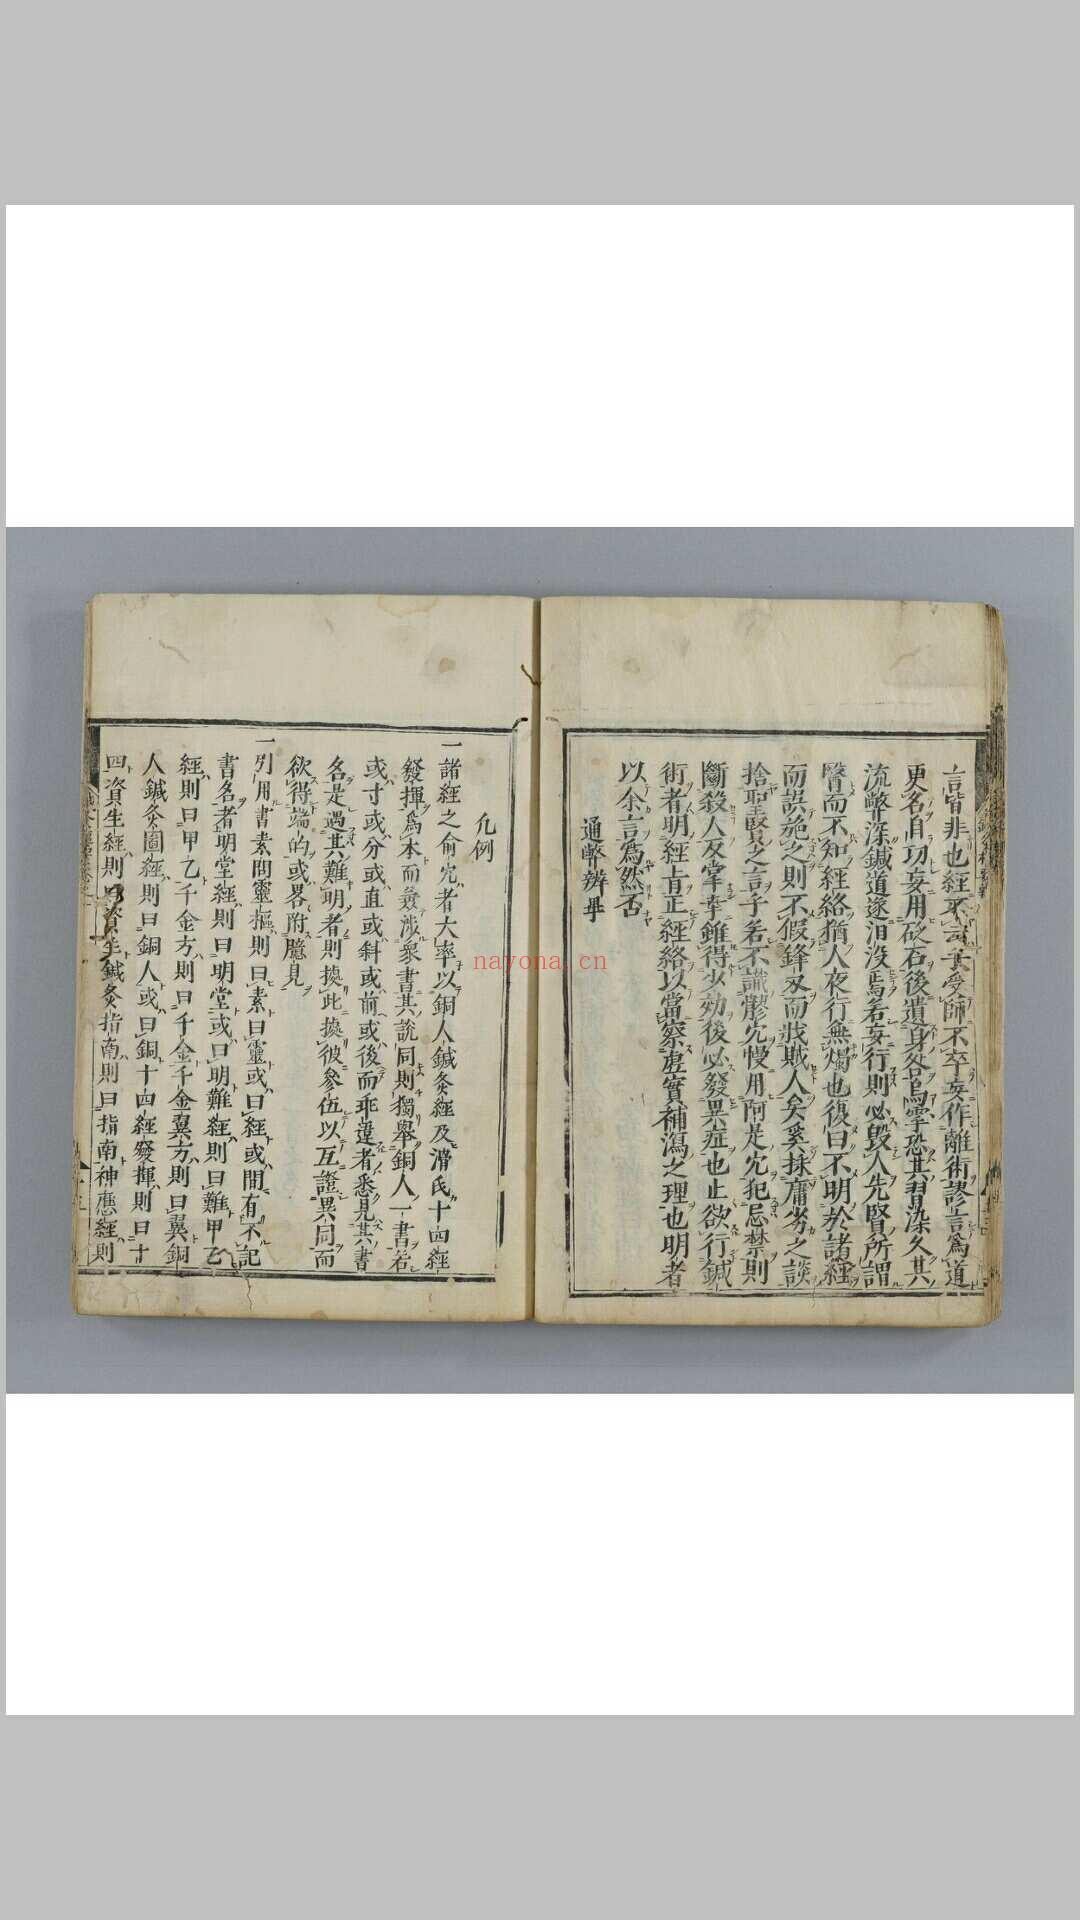 言皆非也經不云乎受師不卒妄作離術謬言爲道
更名自功妄用砭石後遺身咎嗚呼恐其習染久其
流弊深鍼道遂汨没焉若妄行則必毁人先賢所謂
醫而不知經絡猶人夜行無燭也復曰不明於諸經
而誤施之則不假鋒刃而戕賊人矣奚採庸劣之談
捨聖賢之言乎若不識髎穴慢用阿是穴犯忌禁則
斷殺人反掌幸雖得少効後必發異症也止欲行鍼
術者明經肯正經絡以當察虚實補瀉之理也明者
以余言爲然否
通弊辨畢
凡例
一諸經之俞穴者大率以銅人鍼灸經及滑氏十四經
發揮爲本而兼涉衆書其説同則獨舉銅人一書若
或寸或分或直或斜或前或後而乖違者悉見其書
名是遇其難明者則換此換彼參伍以互證異同而
欲得端的或畧附臆見
一引用書素問靈樞則曰素曰靈或曰經或間有不記
書名者明堂經則曰明堂或曰明難經則曰難甲乙
經則曰甲乙千金方則曰千金千金翼方則曰翼銅
人鍼灸圖經則曰銅人或曰銅十四經發揮則曰十
四資生經則曰資生鍼灸指南則曰指南神應經則
nayona.cn